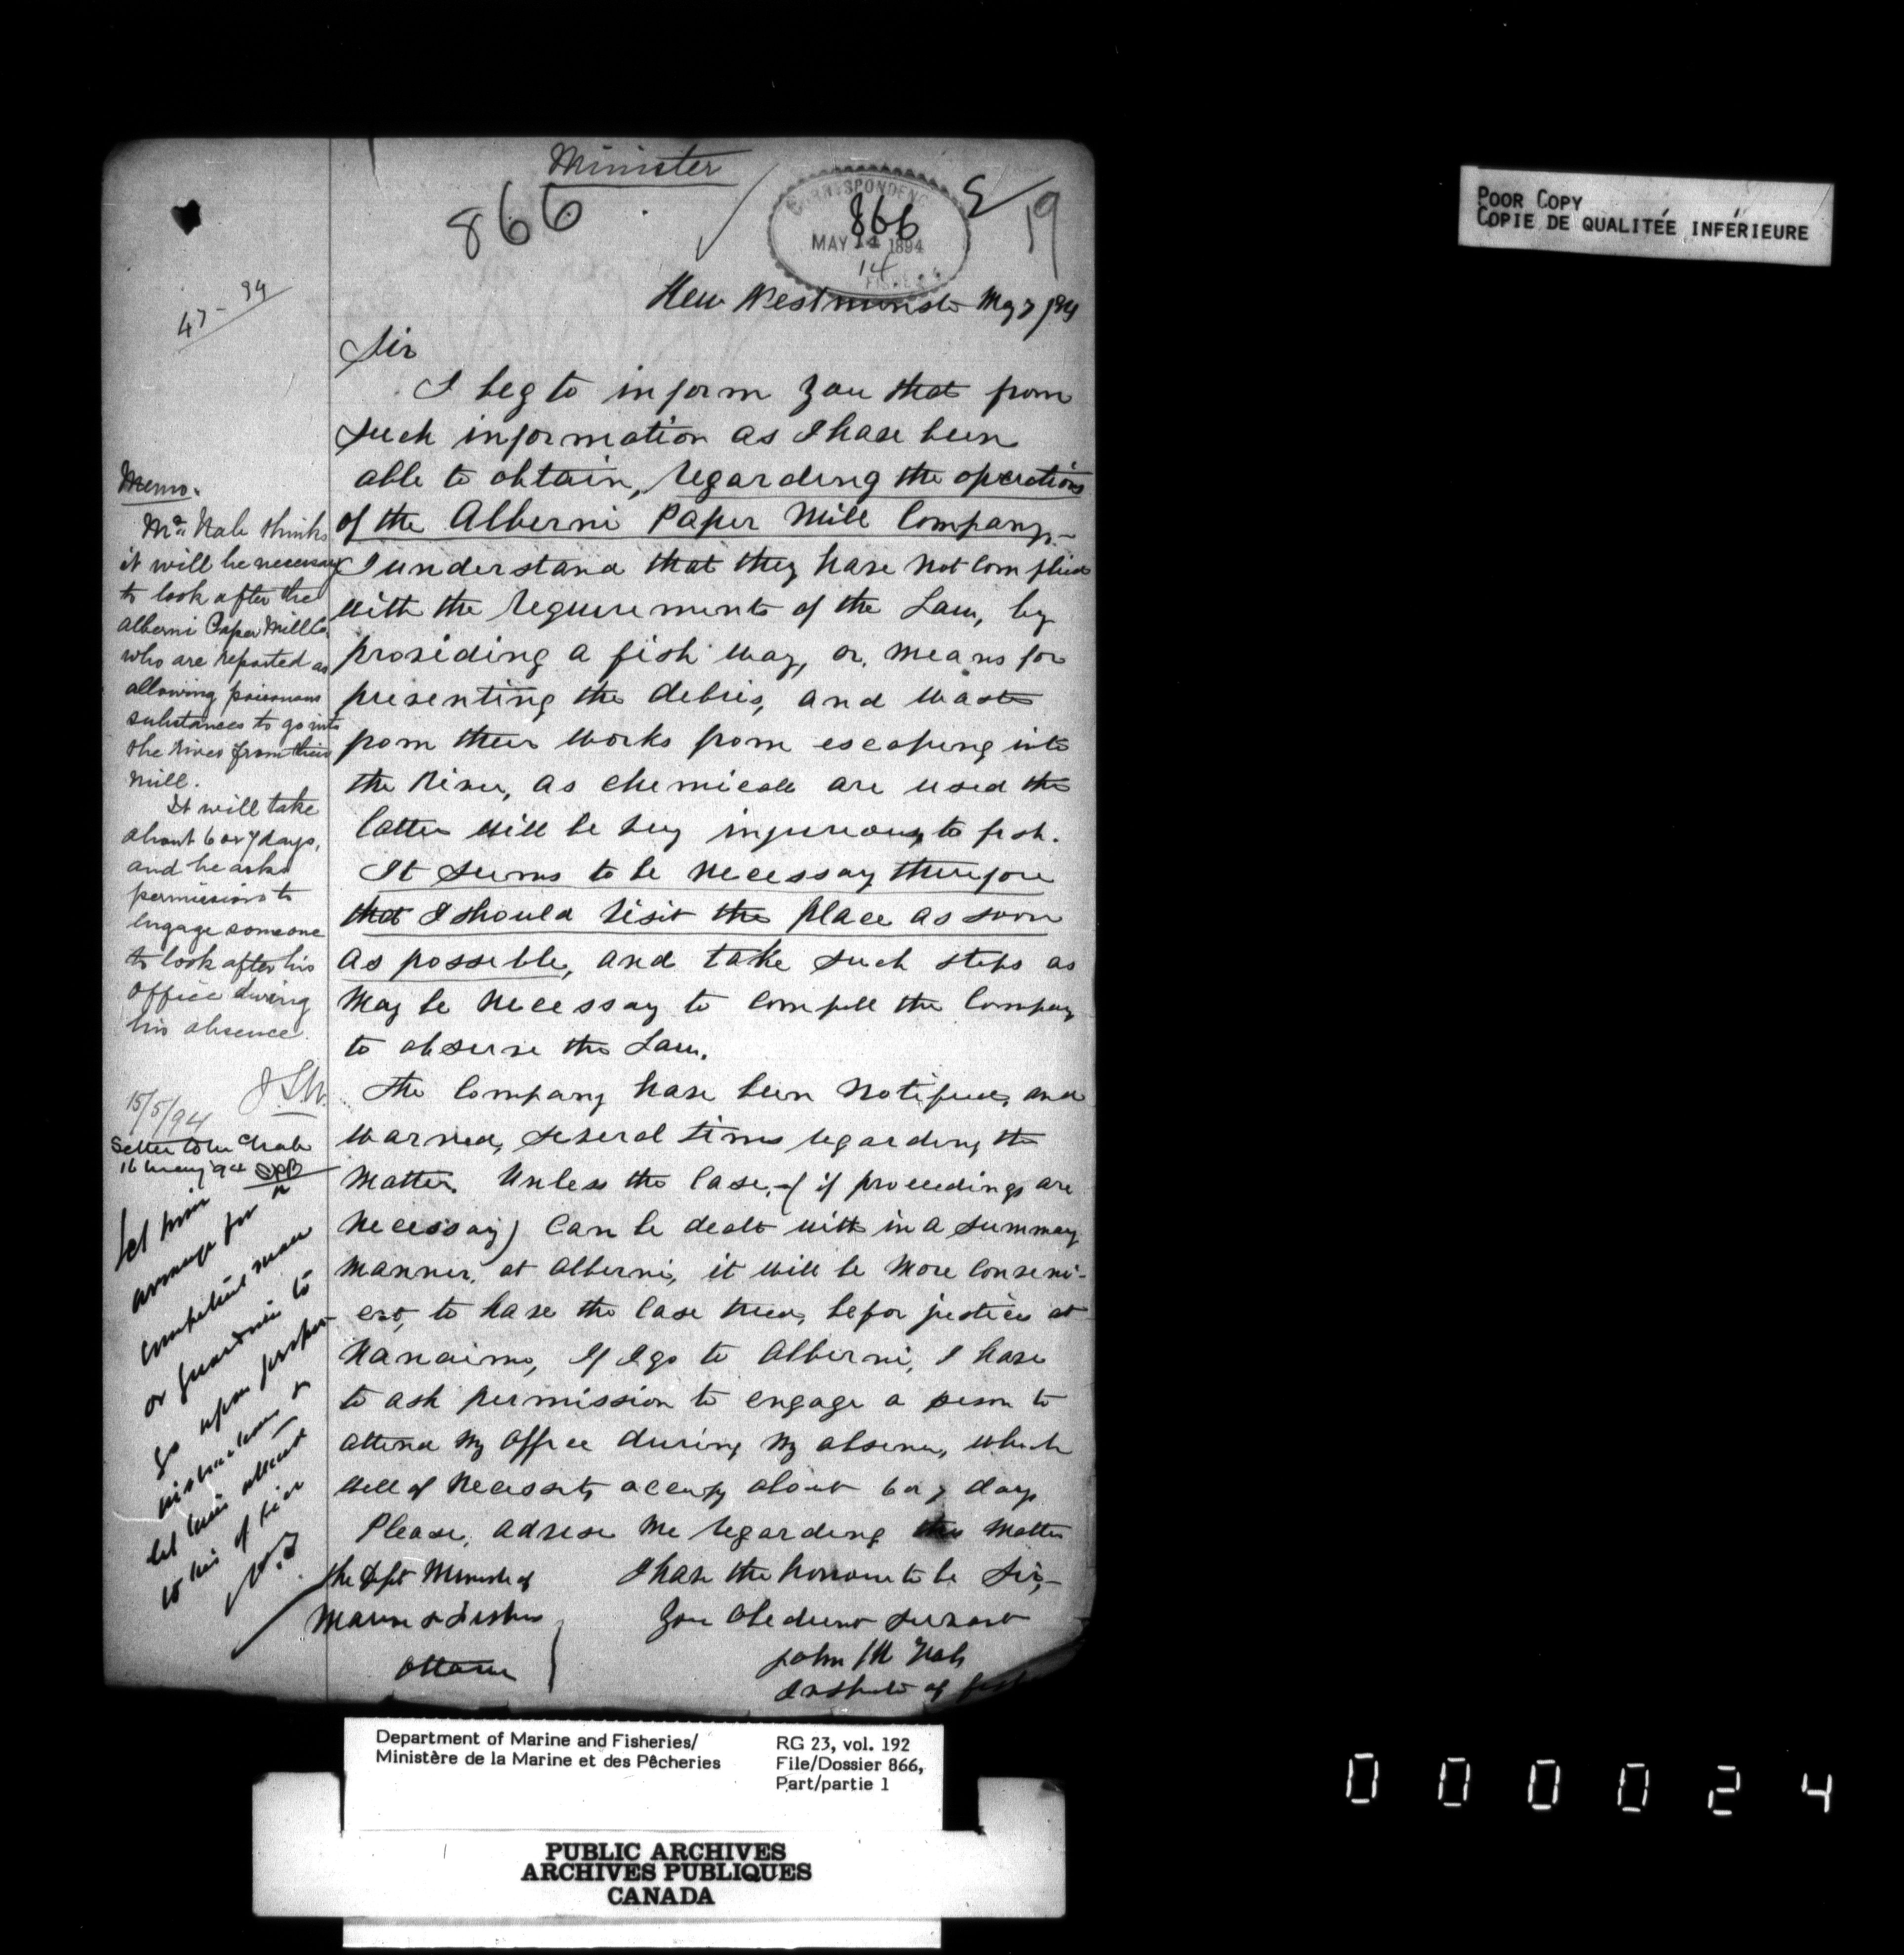 Minister
866
CORRESPONDENCE
866
MAY 14 1894
14
19
New Westminster May 7 1894
47-94
Sir
I beg to inform you that from
such information as I have been
able to obtain, regarding the operations
of the Alberni Paper Mill Company,-
I understand that they have not complied
with the requirements of the Law, by
providing a fish way, or, means for
preventing the debris, and waste
from their works from escaping into
the River, as chemicals are used the
latter will be very injurious, to fish.
It seems to be necessary therefore
that I should visit the place as soon
as possible, and take such steps as
may be necessary to compell the Company
to observe the Law.
The Company have been notified, and
warned, several times regarding the
matter. Unless the case,-( if proceedings are
necessary) can be dealt with in a summary
manner, at Alberni, it will be more conveni-
ent, to have the case tried, before justices at
Nanaimo, If I go to Alberni, I have
to ask permission to engage a person to
attend my office during my absence, which
will of necessity occupy about 6 or 7 days
Please, advise me regarding this matter
I have the honour to be Sir,-
Your obedient servant
John McNab
Inspector of
The Dept Minister of
Marine & Fisheries
Ottawa
Memo.
Mr. Nab thinks
it will be necessary
to look after the
Alberni Paper Mill Co.
who are reported as
allowing poisonous
substances to go into
the river from their
mill.
It will take
about 6 or 7 days,
and he asks
permission to
engage someone
to look after his
office during
his absence.
15/5/94
Letter to Mr McNab
16 May '94
Let him
arrange for a
competent man
or guardian to
go upon proper
instructions &
let him attend
to his office
POOR COPY
COPIE DE QUALITÉE INFÉRIEURE
Department of Marine and Fisheries/
Ministère de la Marine et des Pêcheries
RG 23, vol. 192
File/Dossier 866,
Part/partie 1
PUBLIC ARCHIVES
ARCHIVES PUBLIQUES
CANADA
000024